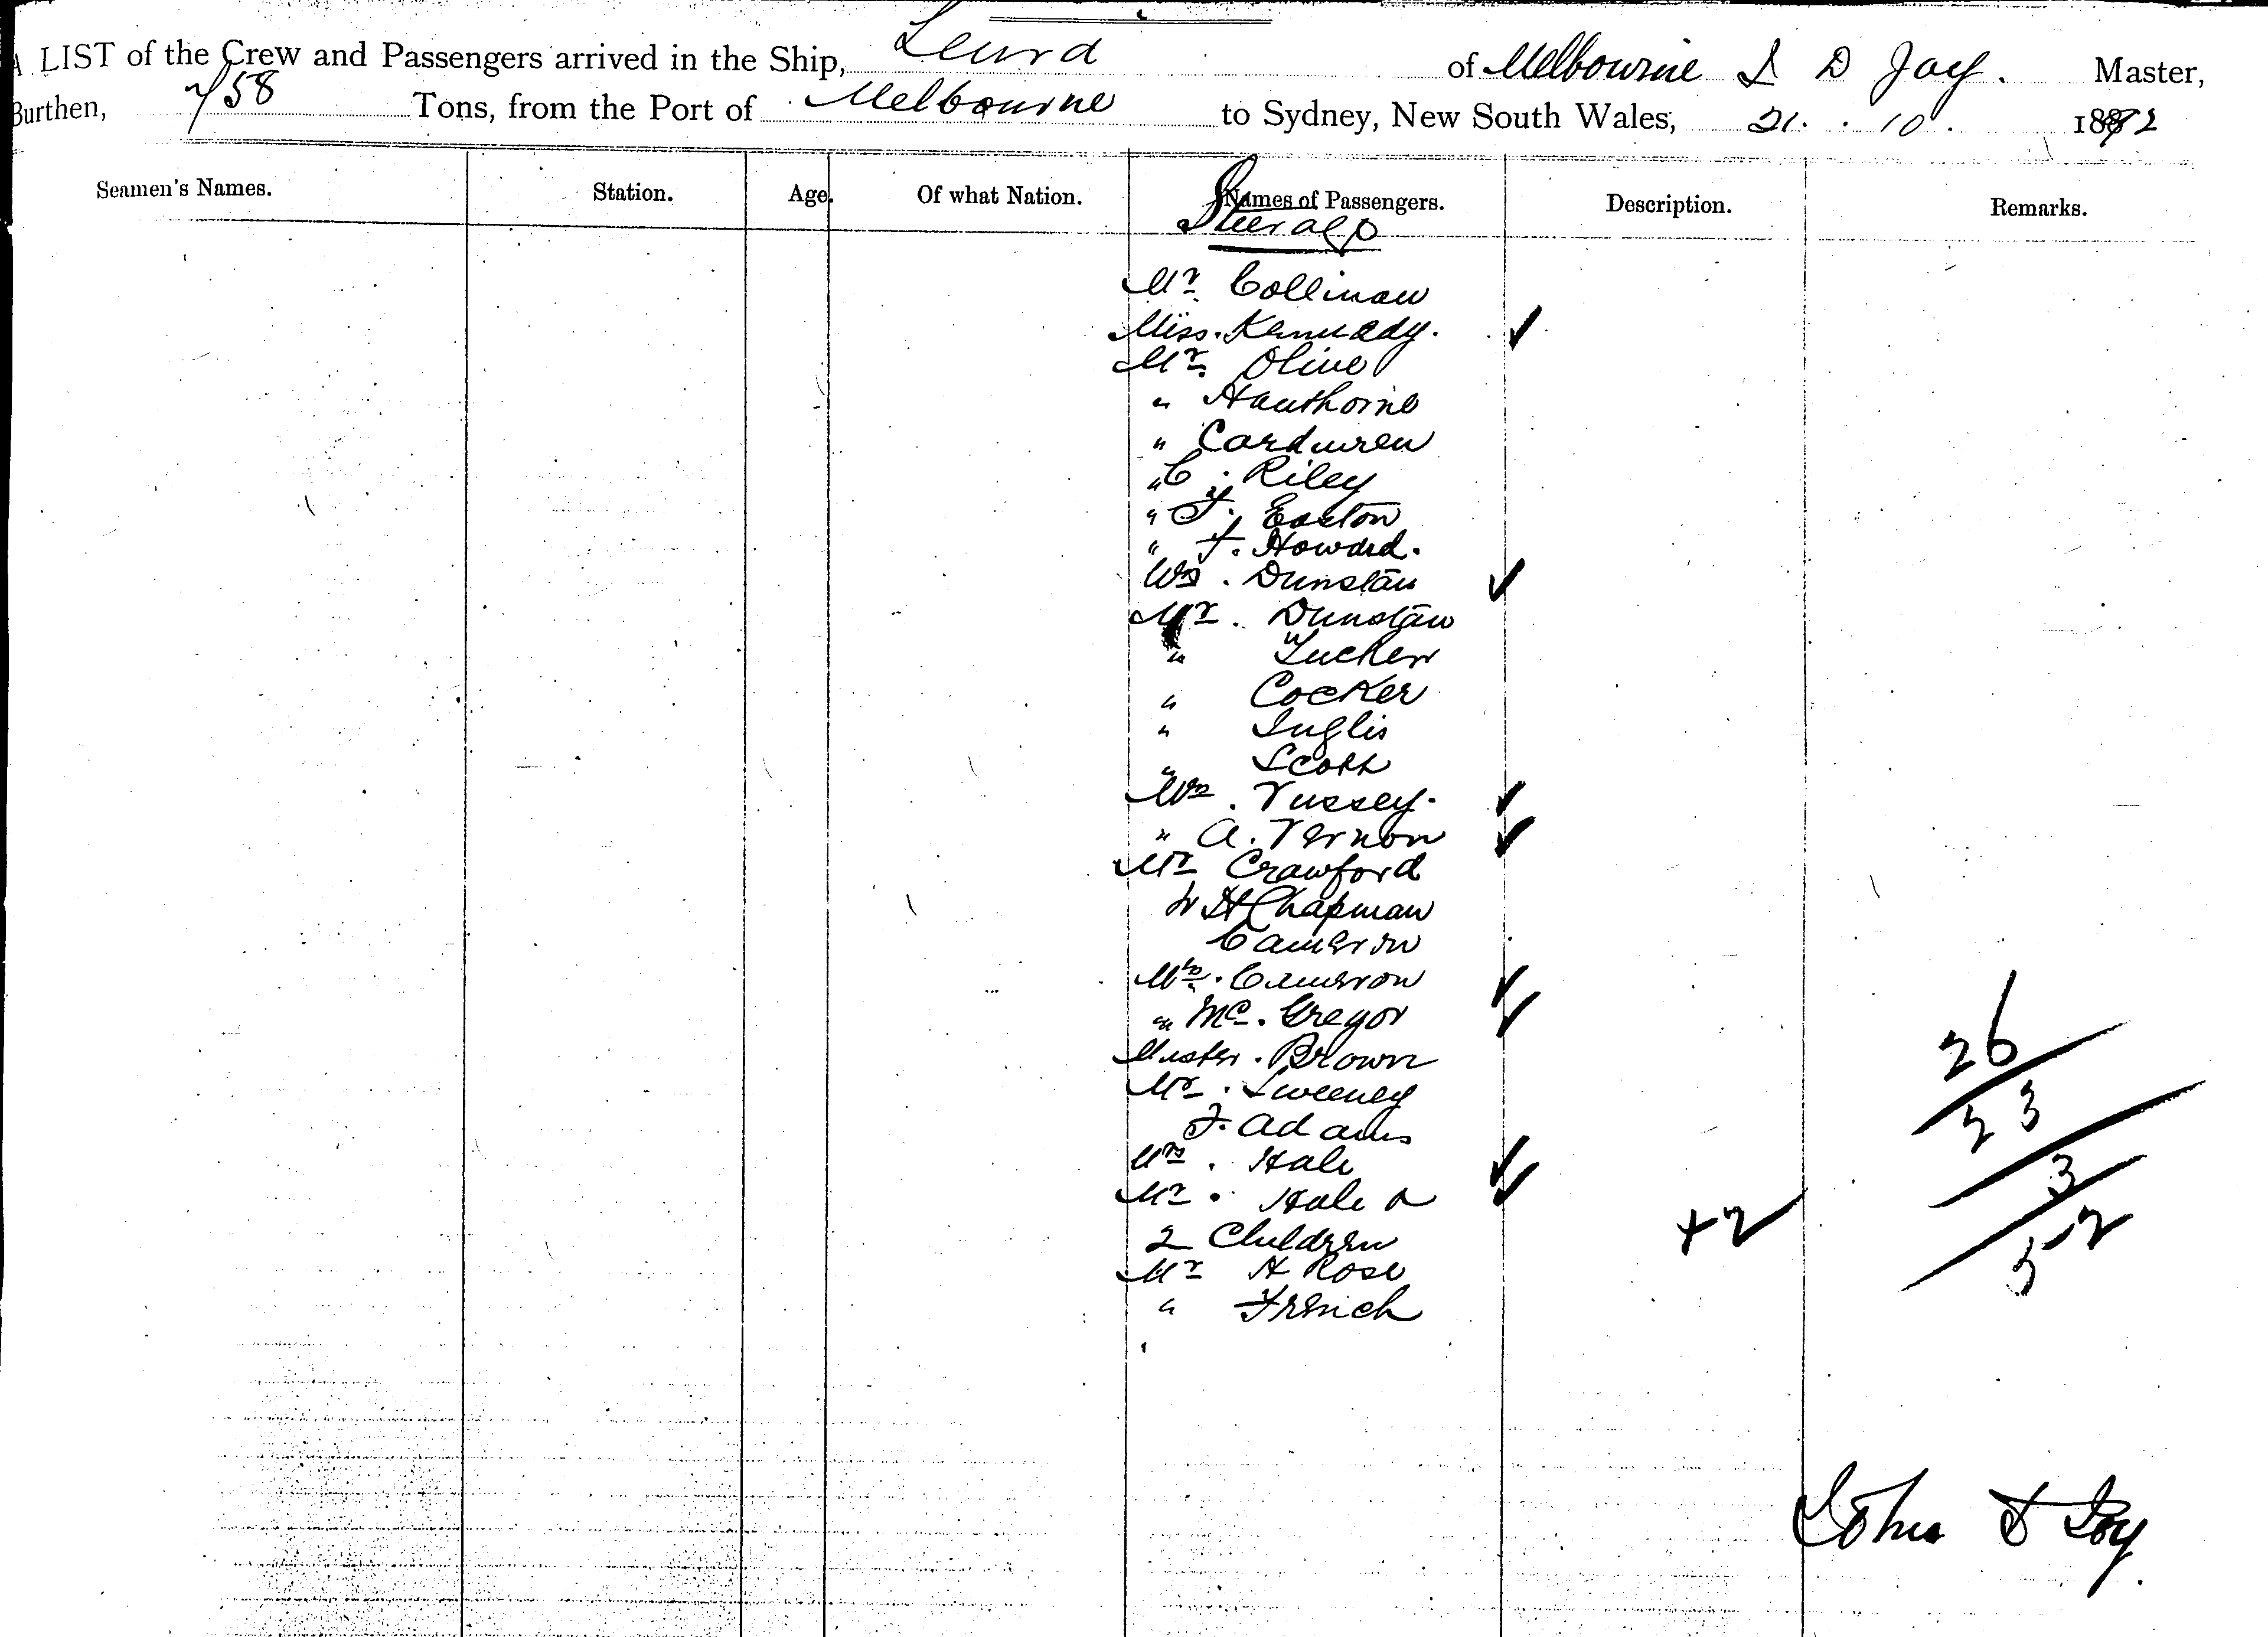 A LIST of the Crew and Passengers arrived in the Ship, of Melbourne D Joy. Master,
Burthen, 758 Tons, from the Port of Melbourne to Sydney, New South Wales, 21. . 10. 1892
Seamen's Names. Station. Age. Of what Nation. Names of Passengers. Description. Remarks.
Steerage
Mr. Collinaw
Miss. Kennedy. ✓
Mr. Olive
" Hawthorne
" Cardwren
" C. Riley
" F. Easton
" F. Howard.
Mrs. Dunstan ✓
Mr. Dunstan
" Tucker
" Cocker
" Inglis
" Scott
Mrs. Tussey. ✓
" A. Vernon ✓
Mr Crawford
W H Chapman
Cameron
Mrs. Cameron ✓
" Mc. Gregor ✓
Master. Brown
Mr. Sweeney
F. Adams
Mrs. Hale ✓
Mr. Hale & ✓
2 Children +2
Mr H Rose
" French
26
23
3
52
John D Joy